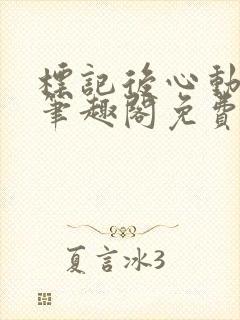 標記後心動
筆趣閣免費
夏言冰3